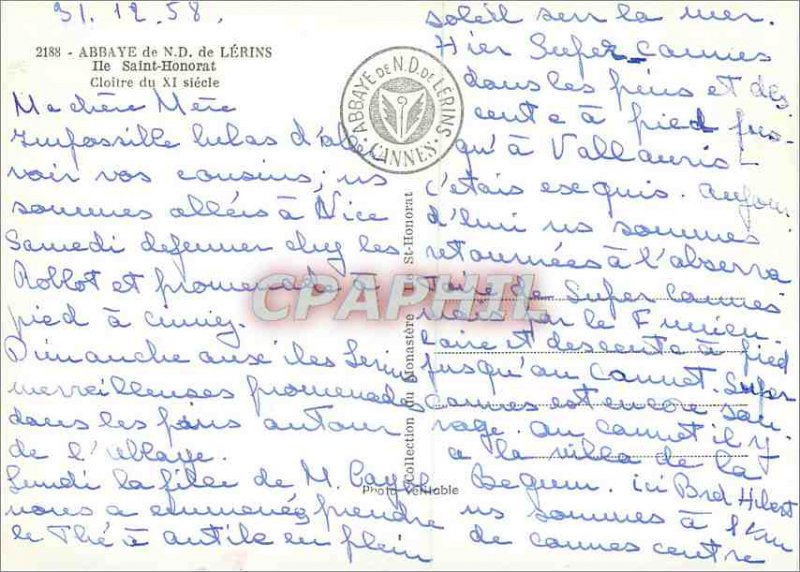 31.12.58.
2188 - ABBAYE de N.D. de LÉRINS
Ile Saint-Honorat
Cloître du XI siècle
Ma chère Mère
Impossible hélas d'a
voir vos cousins; ns
sommes allées à Nice
Samedi dejeuner chez les
Roblot et promenade à
pied à Cimiez.
Dimanche aux iles Lerins
merveilleuses promenades
dans les pins autour
de l'Abbaye.
Lundi la fille de M.
nous a emmenés prendre
le Thé à Antibe en plein
soleil sur la mer.
Hier Super-Cannes
dans les pins et des
cente à pied jus-
qu'à Vallauris -
c'etais exquis. aujour
d'hui ns sommes
retournées à l'observa
toire de Super Cannes
par le Funicu-
laire et descente à pied
jusqu'au Cannet. Super
Cannes est encore sau-
vage. Au Cannet il y
a la villa de la
Begum. ici Brd
ns sommes à 1 Km
de Cannes centre
ABBAYE DE N.D. DE LÉRINS
CANNES
Collection du Monastère St-Honorat
Photo Véritable
CPAPHIL